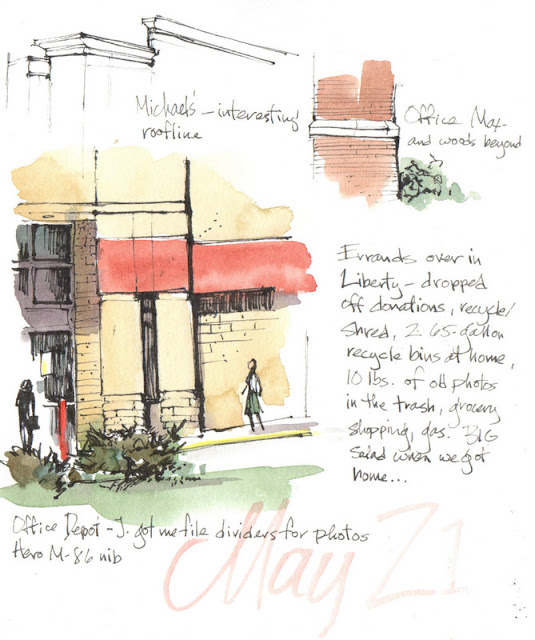 Michaels' – interesting
roofline
Office Max
and woods beyond
Errands over in
Liberty – dropped
off donations, recycle/
shred, 2 65-gallon
recycle bins at home,
10 lbs. of old photos
in the trash, grocery
shopping, gas. BIG
salad when we got
home...
Office Depot - J. got me file dividers for photos
Hero M-86 nib
May 21